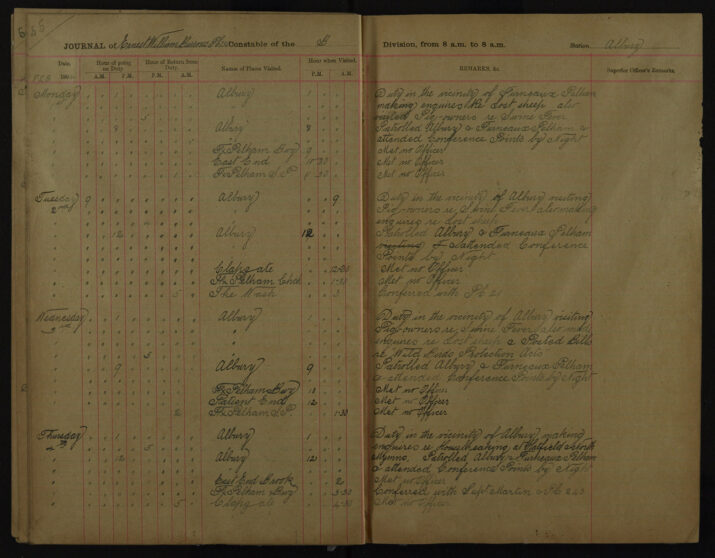 JOURNAL of Ernest William Constable of the B Division, from 8 a.m. to 8 a.m. Station Albury
Date. Hour of going on Duty Hour of Return from Duty. Names of Places Visited. Hour when Visited. REMARKS, &c. Superior Officer's Remarks.
A.M. P.M. A.M. P.M. P.M. A.M.
Monday 1 Albury 1 Duty in the vicinity of Furneaux Pelham
making enquires re lost sheep also
5 visited Pig-owners re Swine Fever
8 Albury 8 Patrolled Albury & Furneaux Pelham &
attended Conference Points by Night
Fx Pelham Bury 9 Met no Officer
East End 10-30 Met no Officer
1 Fx Pelham S.P. 11-30 Met no Officer
Tuesday 9 Albury 9 Duty in the vicinity of Albury visiting
2nd Pig-owners re Swine Fever also making
enquires re lost sheep
12 Albury 12 Patrolled Albury & Furneaux Pelham
& attended Conference
Points by Night
Clapgate 12-30 Met no Officer
Fx Pelham Chch 1-30 Met no Officer
5 The Wash 3 Conferred with P.C. 21
Wednesday 1 Albury 1 Duty in the vicinity of Albury visiting
3rd Pig-owners re Swine Fever also made
enquires re lost sheep & Posted Bills
5 re Wild Birds Protection Acts
9 Albury 9 Patrolled Albury & Furneaux Pelham
& attended Conference Points by Night
Fx Pelham Bury 11 Met no Officer
Patient End 12 Met no Officer
2 Fx Pelham S.P. 1-30 Met no Officer
Thursday 1 Albury 1 Duty in the vicinity of Albury making
4th 5 enquires re Housebreaking at Hatfield & North
12 Albury 12 Mymms. Patrolled Albury & Furneaux Pelham
& attended Conference Points by Night
East End Brook 2 Met no Officer
Fx Pelham Bury 3-30 Conferred with Supt Martin & P.C. 243
5 Clapgate 4-30 Met no Officer